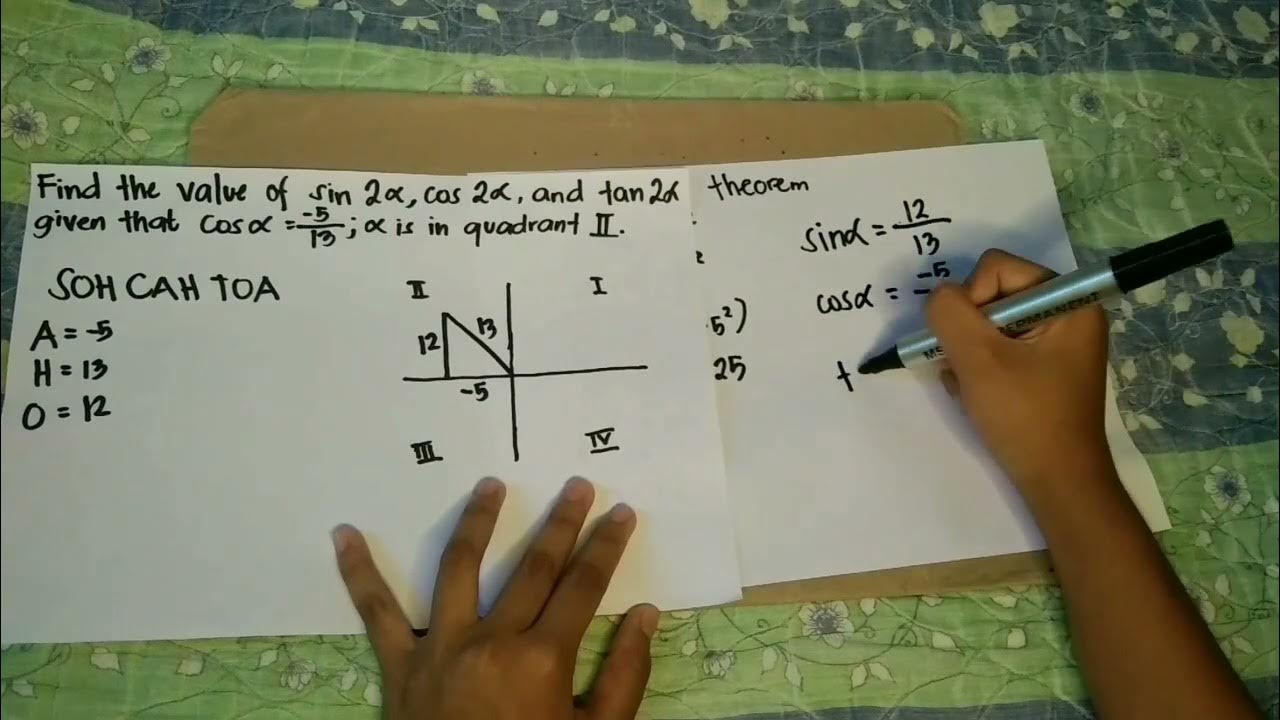 Find the value of sin 2α, cos 2α, and tan 2α
given that cos α = -5/13 ; α is in quadrant II.
SOH CAH TOA
A = -5
H = 13
O = 12
II
I
12
13
-5
III
IV
theorem
5²)
25
sin α = 12/13
cos α = -5
t
PERMANENT